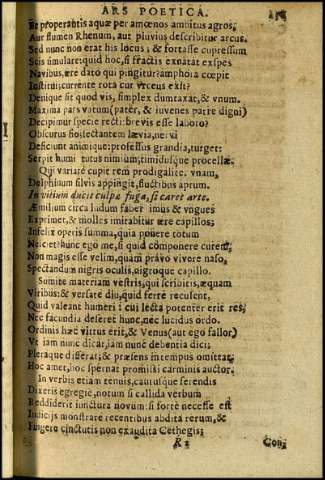 ARS POETICA.
Et properantis aquæ per amœnos ambitus agros,
Aut flumen Rhenum, aut pluvius describitur arcus.
Sed nunc non erat his locus; & fortasse cupressum
Scis simulare: quid hoc, si fractis exnatat exspes
Navibus, ære dato qui pingitur? amphora cœpit
Institui; currente rota cur vrceus exit?
Denique sit quod vis, simplex dumtaxat, & vnum.
Maxima pars votum (pater, & iuvenes patre digni)
Decipimur specie recti: brevis esse laboro?
Obscurus fio; sectantem lævia, nervi
Deficiunt animique: professus grandia, turget:
Serpit humi tutus nimium, timidusque procellæ.
Qui variare cupit rem prodigaliter vnam,
Delphinum silvis appingit, fluctibus aprum.
In vitium ducit culpæ fuga, si caret arte.
Æmilium circa ludum faber imus & vngues
Exprimet, & molles imitabitur ære capillos;
Infelix operis summa, quia ponere totum
Nesciet: hunc ego me, si quid componere curem,
Non magis esse velim, quam pravo vivere naso,
Spectandum nigris oculis, nigroque capillo.
Sumite materiam vestris, qui scribitis, æquam
Viribus: & versate diu, quid ferre recusent,
Quid valeant humeri: cui lecta potenter erit res,
Nec facundia deseret hunc, nec lucidus ordo.
Ordinis hæc virtus erit, & Venus (aut ego fallor)
Vt iam nunc dicat, iam nunc debentia dici;
Pleraque differat; & præsens in tempus omittat,
Hoc amet, hoc spernat promissi carminis auctor.
In verbis etiam tenuis, cautusque serendis
Dixeris egregie, notum si callida verbum
Reddiderit iunctura novum: si forte necesse est
Indiciis monstrare recentibus abdita rerum, &
Fingere cinctutis non exaudita Cethegis;
R 2 Con;